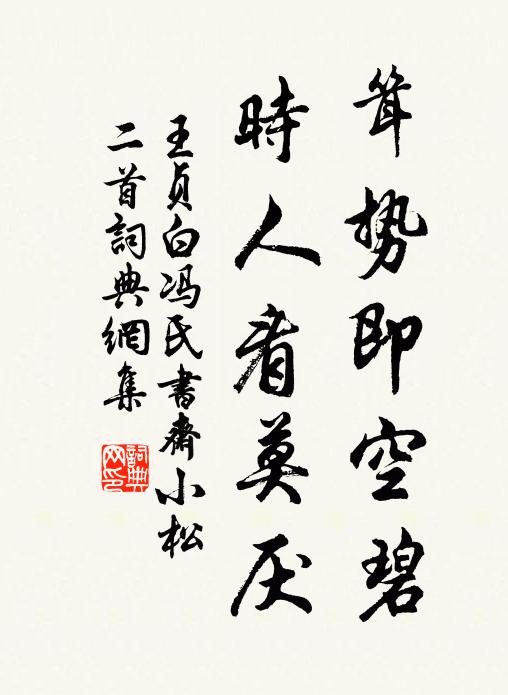 耸势即空碧
時人看莫厌
王贞白冯氏書齋小松
二首詞典網集
詞典网印